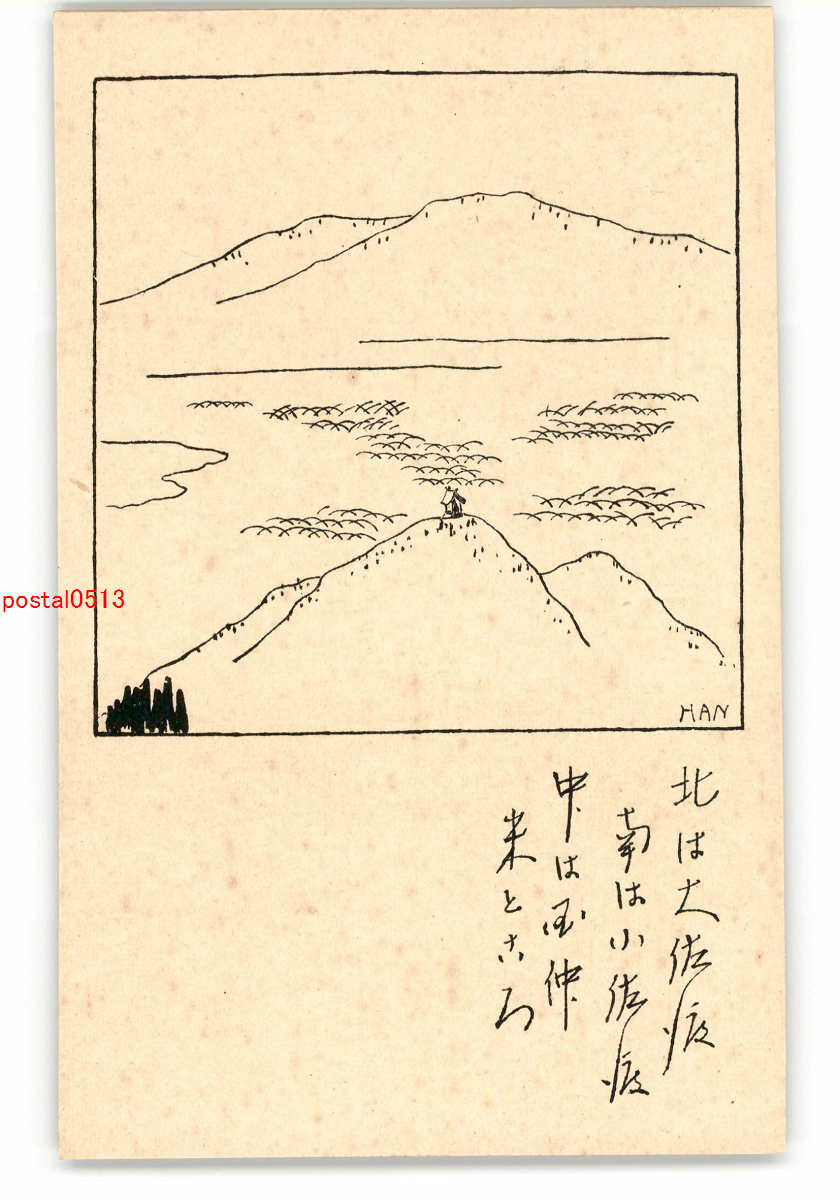 postal0513
HAN
北は大佐渡
南は小佐渡
中は国仲
米ところ